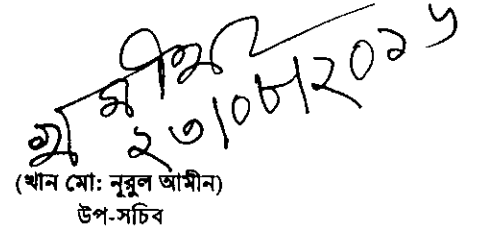 ২৩/০৮/২০১৬
(খান মো: নূরুল আমীন)
উপ-সচিব